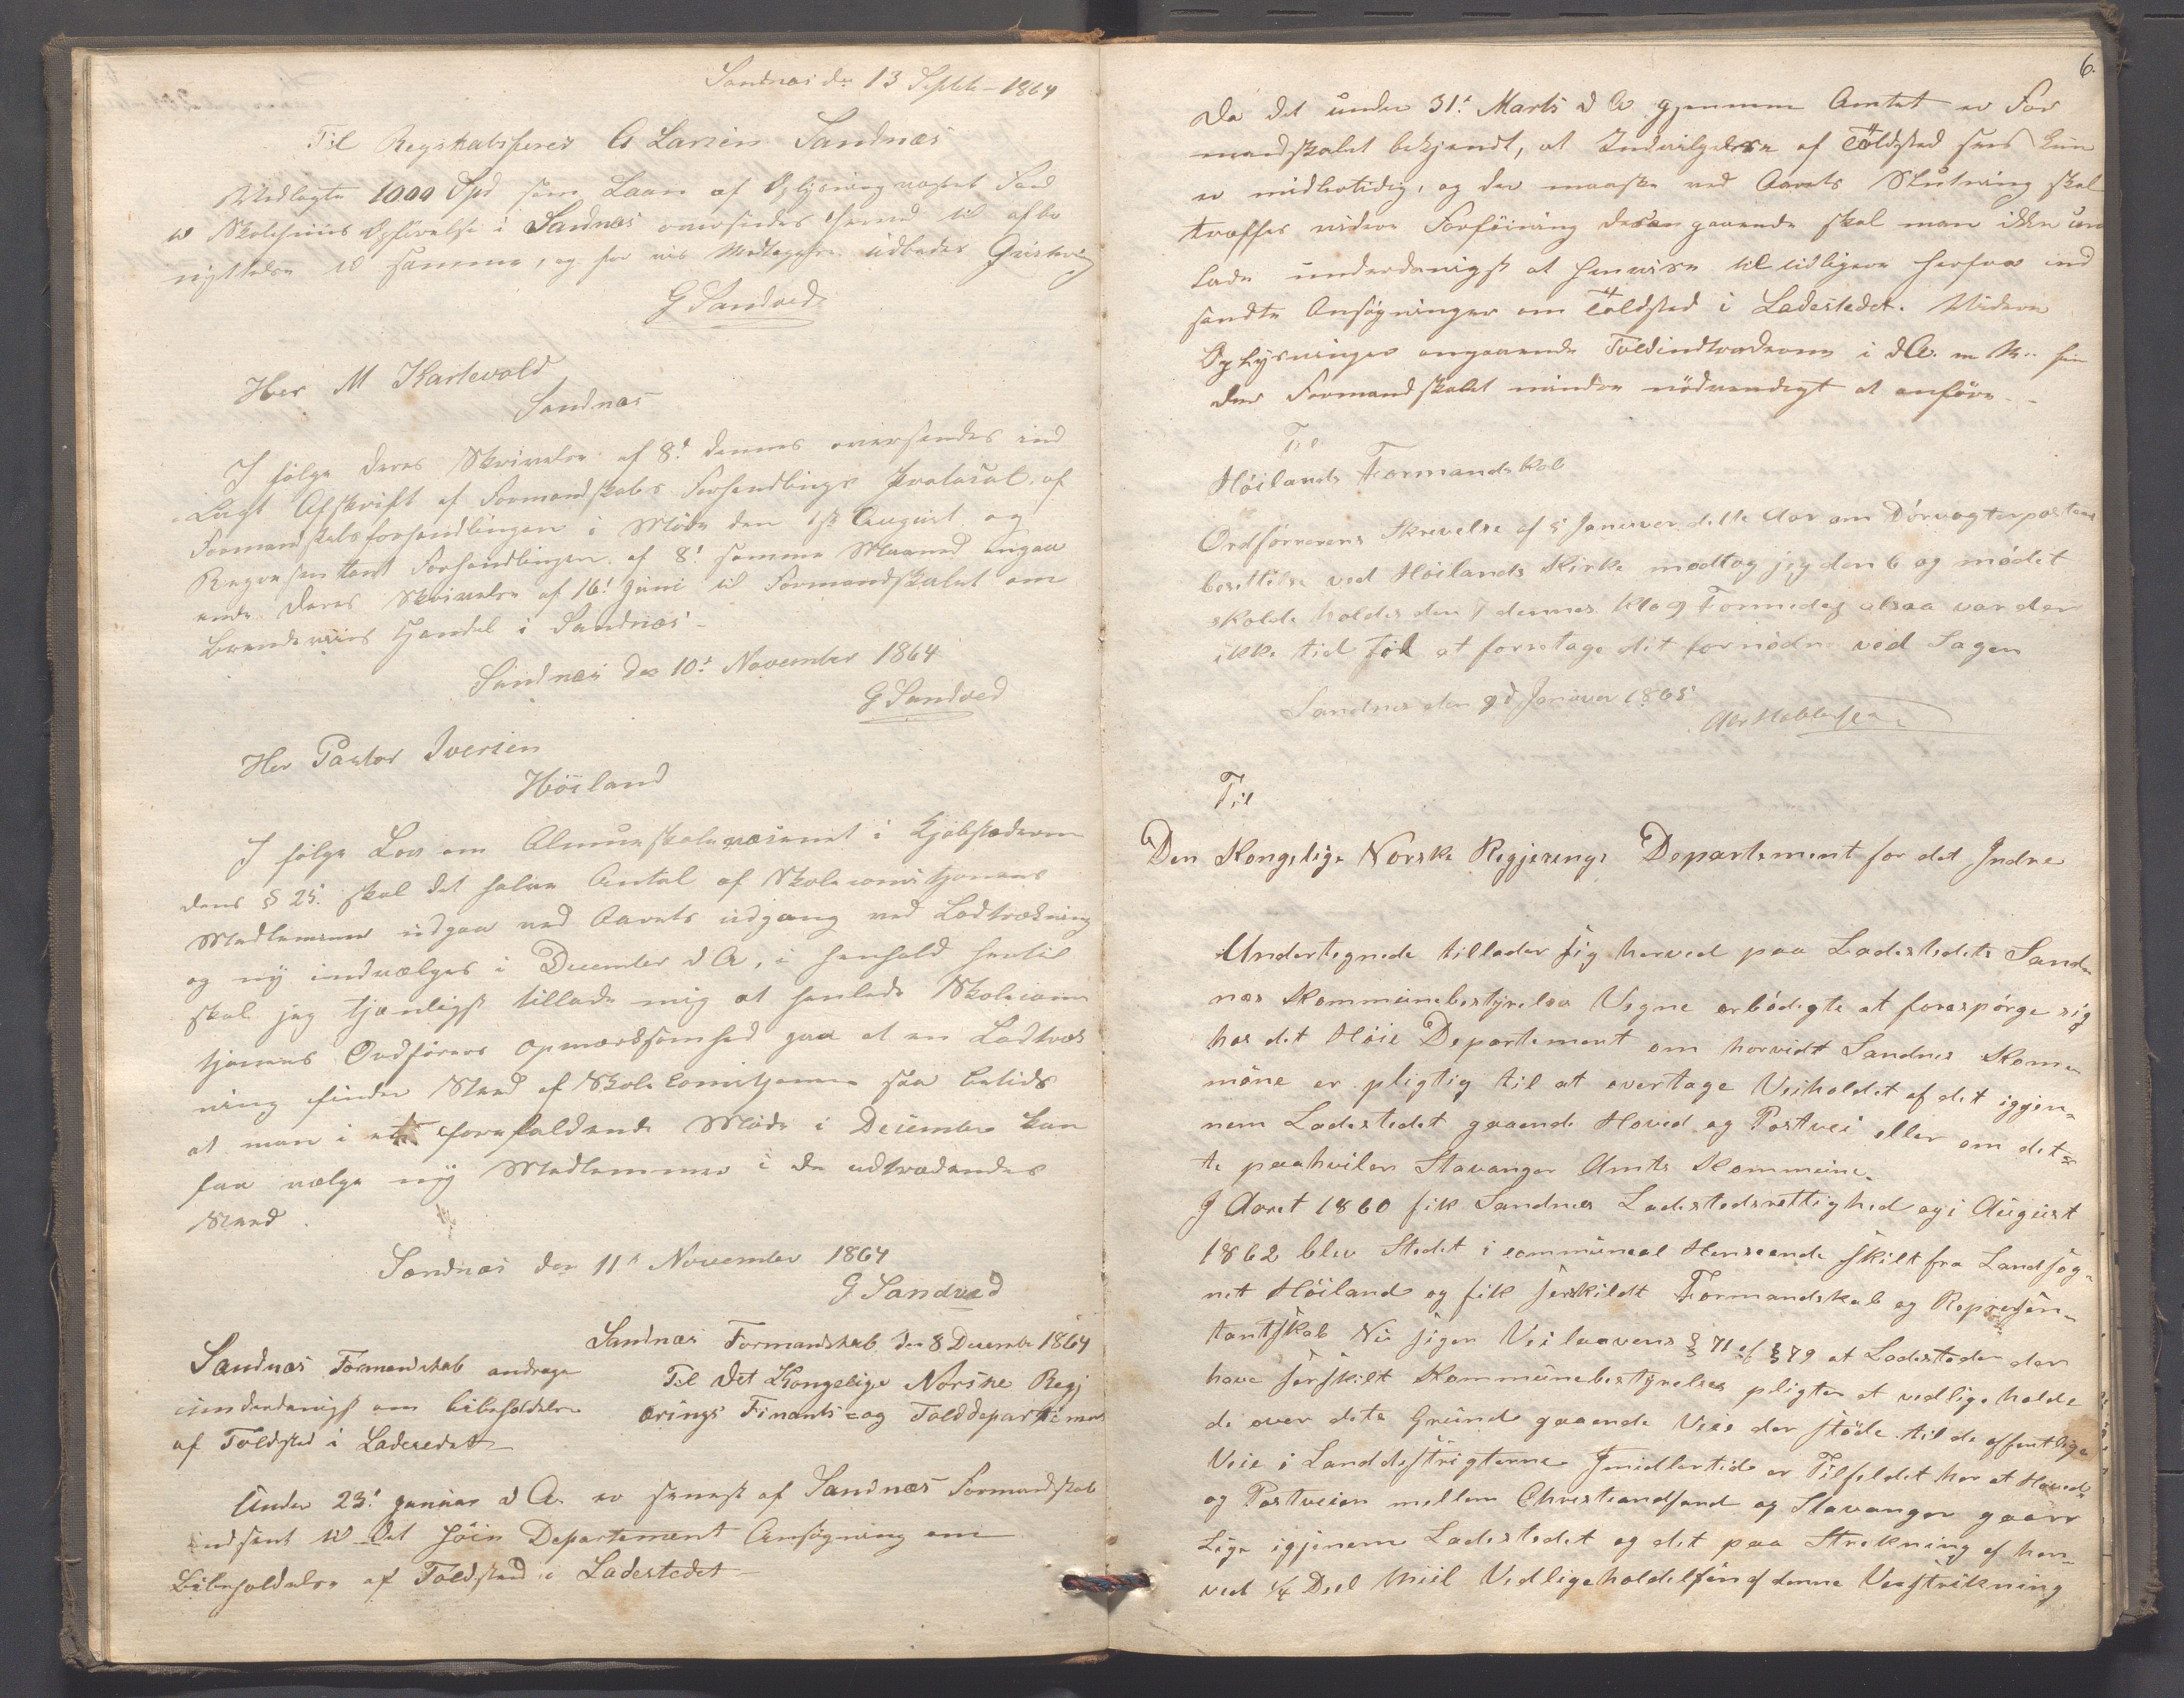 Sandnæs den 13 Septbr - 1864
Til Regnskabsfører A Larsen Sandnæs
Medlagte 1000 Spd som Laan af Oplysningsvæsnet Fond
til Skolehuus Opførelse i Sandnæs oversendes herved til afbe
nyttelse til samme, og for vis Modtagelse udbedes Qvitering
G Sandved
Her M Kartevold
Sandnæs
I følge Deres Skrivelse af 8d dennes oversendes ind
Lagt Afskrift af Formandskabs Forhandlings Protocol af
Formandskabsforhandlingen i Møde den 1st August og
Repræsentant Forhandlingen af 8d samme Maaned angaa
ende Deres Skrivelse af 16d Juni til Formandskabet om
Brændeviins Handel i Sandnæs -
Sandnæs den 10d November 1864
G Sandved
Her Pastor Iversen
Höiland
I følge Lov om Almueskolevæsenet i Kjøbstæderne
dens § 25. skal det halve Antal af Skolecomitjonens
Medlemmer udgaa ved Aarets udgang ved Lodtrækning
og ny indvælges i December d A, i henhold hertil
skal jeg tjenligst tillade mig at henlede Skolecomi
tjonens Ordførers opmærksomhed paa at en Lodtræk
ning finder Sted af Skole Comitjonen saa betids
at man i et forefaldende Møde i December kan
faa vælge ny Medlemmer i de udtrædendes
Sted.
Sandnæs den 11d November 1864
G Sandved
Sandnæs Formandskab den 8 December 1864
Sandnæs Formandskab andrage
underdanigst om bibeholdelse
af Toldsted i Ladestedet
Til Det Kongelige Norske Regj
ærings Finants- og Tolddepartement
Under 23d Januar d A. er senest af Sandnæs Formandskab
indsent til Det Høie Departement Ansøgning om
Bibeholdelse af Toldsted i Ladestedet -
6.
Da det under 31d Marts d A gjennem Amtet er For
mandskabet bekjendt, at Indvilgelse af Toldsted hers kun
er midlertidig, og der maaske ved Aarets Slutning skal
træffes videre Forföining desangaaende skal man ikke und
lade underdanigst at henvise til tidligere herfra ind
sendte Ansøgninger om Toldsted i Ladestedet. Videre
Oplysninger angaaende Toldindtræderne i d A. m V. fin
der Formandskabet mindre nödvendigt at anföre..
Til
Höilands Formandskab
Ordförrerens Skrevelse af 5 Januver dette Aar om Dörvogterpostens
besettelse ved Höilands Kirke modtog jeg den 6 og mödet
skolde holdes den 7 dennes Klo 9 Formedag alsaa var der
ikke tid föl at foretage dit fornödne ved Sagen
Sandnes den 9d Januver 1865
Til
Den Kongelige Norske Regjerings Departement for det Indre
Undertegnede tillader sig herved paa Ladestedets Sand
nes Kommunebestyrelses Vegne erbödigte at forespörge sig
hos det Höie Departement om horvidt Sandnes Kom
mune er pligtig til at overtage Veiholdet af det iggjen
nem Ladestedet gaaende Hoved og Postvei eller om det
te paahviler Stavanger Amts Kommune.
I Aaret 1860 fik Sandnes Ladestedsrettighed og i August
1862 blev Stedet i communal Henseende skilt fra Landsog
net Höiland og fik serskildt Formandskab og Represen
tantskab Nu siger Veilaavens § 71 cf § 79 at Ladesteder der
have serskilt Kommunebestyrelses pligter at vedligeholde
de over dets Grund gaaende Veie der stöde til de offentlige
Veie i Landdistrigterne Imidlertid er Tilfeldet her at Hoved
og Postveien mellem Christiandsand og Stavanger gaar
Lige igjenem Ladestedet og det paa Strekning af hen
ved ¼ Deel Miil Vedligeholdelsen af denne Veistrekning